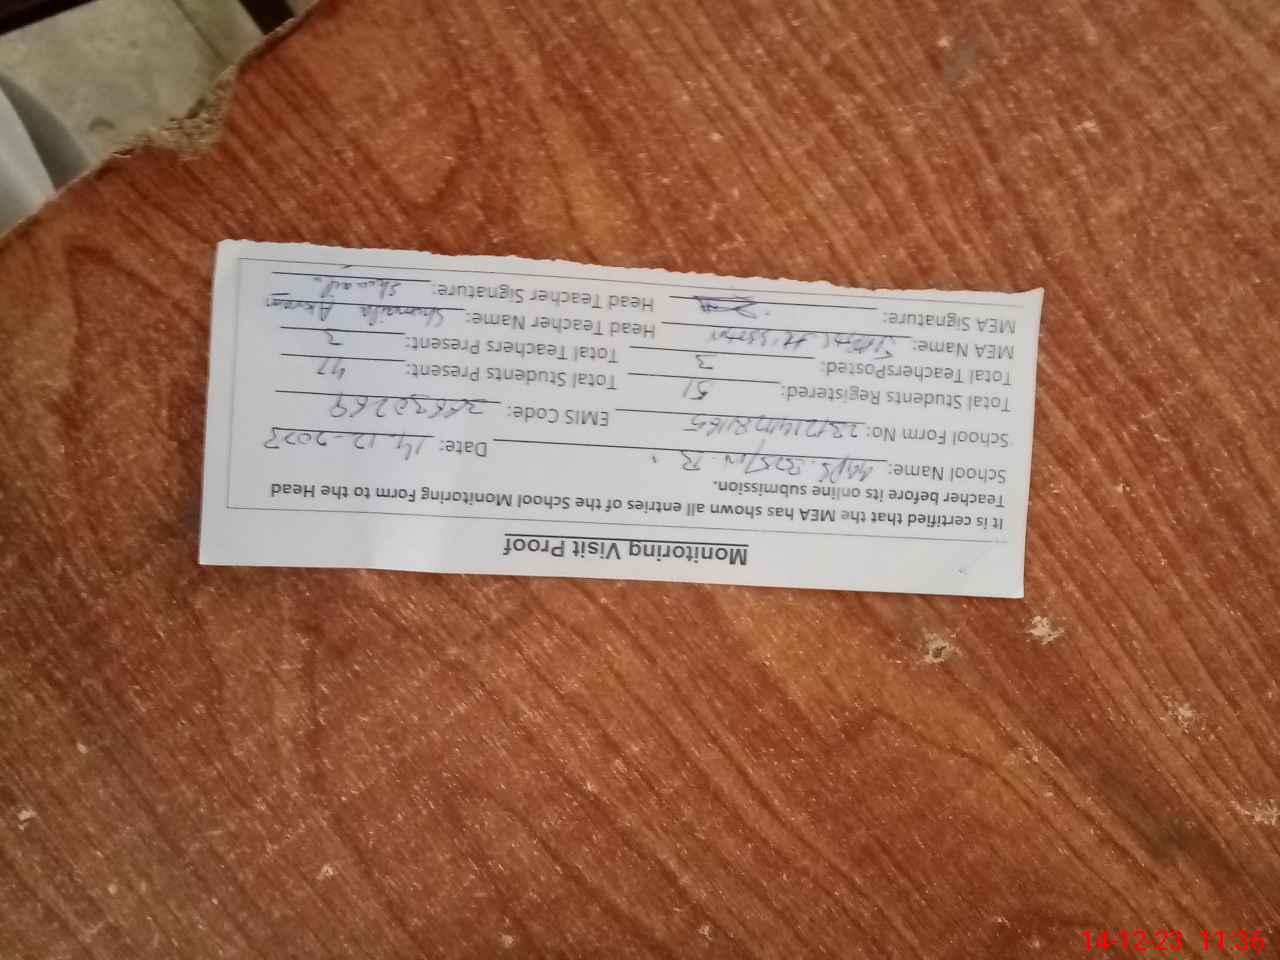 Monitoring Visit Proof
It is certified that the MEA has shown all entries of the School Monitoring Form to the Head
Teacher before its online submission.
School Name: Date: 14-12-2023
School Form No: EMIS Code:
Total Students Registered: 51 Total Students Present: 47
Total TeachersPosted: 3 Total Teachers Present: 3
MEA Name: Head Teacher Name: Shumaila Akram
MEA Signature: Head Teacher Signature:
14-12-23 11:36